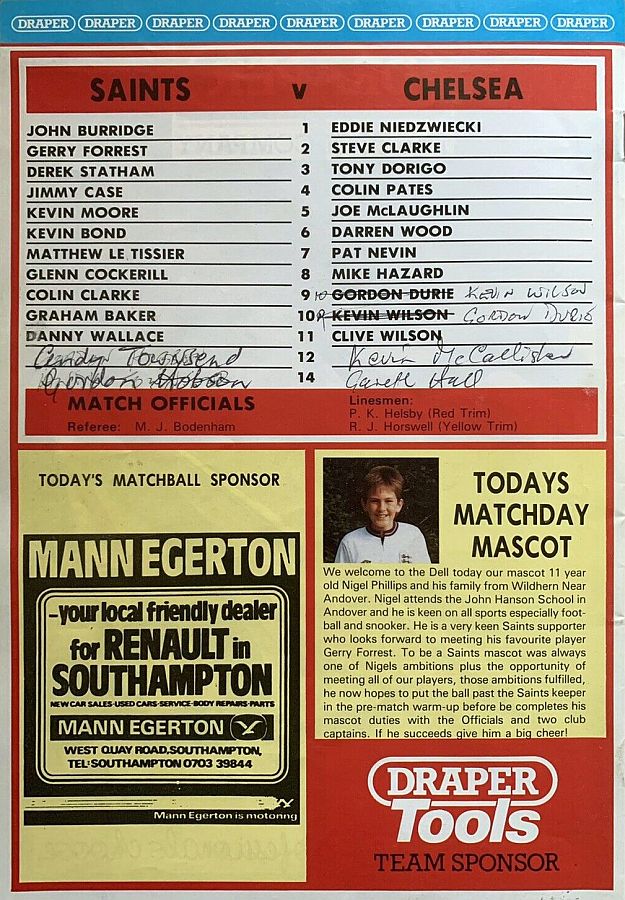 DRAPER DRAPER DRAPER DRAPER DRAPER DRAPER DRAPER DRAPER DRAPER
SAINTS v CHELSEA
JOHN BURRIDGE 1 EDDIE NIEDZWIECKI
GERRY FORREST 2 STEVE CLARKE
DEREK STATHAM 3 TONY DORIGO
JIMMY CASE 4 COLIN PATES
KEVIN MOORE 5 JOE McLAUGHLIN
KEVIN BOND 6 DARREN WOOD
MATTHEW LE TISSIER 7 PAT NEVIN
GLENN COCKERILL 8 MIKE HAZARD
COLIN CLARKE 9 10 GORDON DURIE KEVIN WILSON
GRAHAM BAKER 10 9 KEVIN WILSON GORDON DURIE
DANNY WALLACE 11 CLIVE WILSON
Townsend 12 Kevin McCallister
Gordon Hobson 14 Gareth Hall
MATCH OFFICIALS
Referee: M. J. Bodenham
Linesmen:
P. K. Helsby (Red Trim)
R. J. Horswell (Yellow Trim)
TODAY'S MATCHBALL SPONSOR
MANN EGERTON
-your local friendly dealer
for RENAULT in
SOUTHAMPTON
NEW CAR SALES·USED CARS·SERVICE·BODY REPAIRS·PARTS
MANN EGERTON
WEST QUAY ROAD, SOUTHAMPTON,
TEL: SOUTHAMPTON 0703 39844
Mann Egerton is motoring
TODAYS
MATCHDAY
MASCOT
We welcome to the Dell today our mascot 11 year
old Nigel Phillips and his family from Wildhern Near
Andover. Nigel attends the John Hanson School in
Andover and he is keen on all sports especially foot-
ball and snooker. He is a very keen Saints supporter
who looks forward to meeting his favourite player
Gerry Forrest. To be a Saints mascot was always
one of Nigels ambitions plus the opportunity of
meeting all of our players, those ambitions fulfilled,
he now hopes to put the ball past the Saints keeper
in the pre-match warm-up before be completes his
mascot duties with the Officials and two club
captains. If he succeeds give him a big cheer!
DRAPER
Tools
TEAM SPONSOR